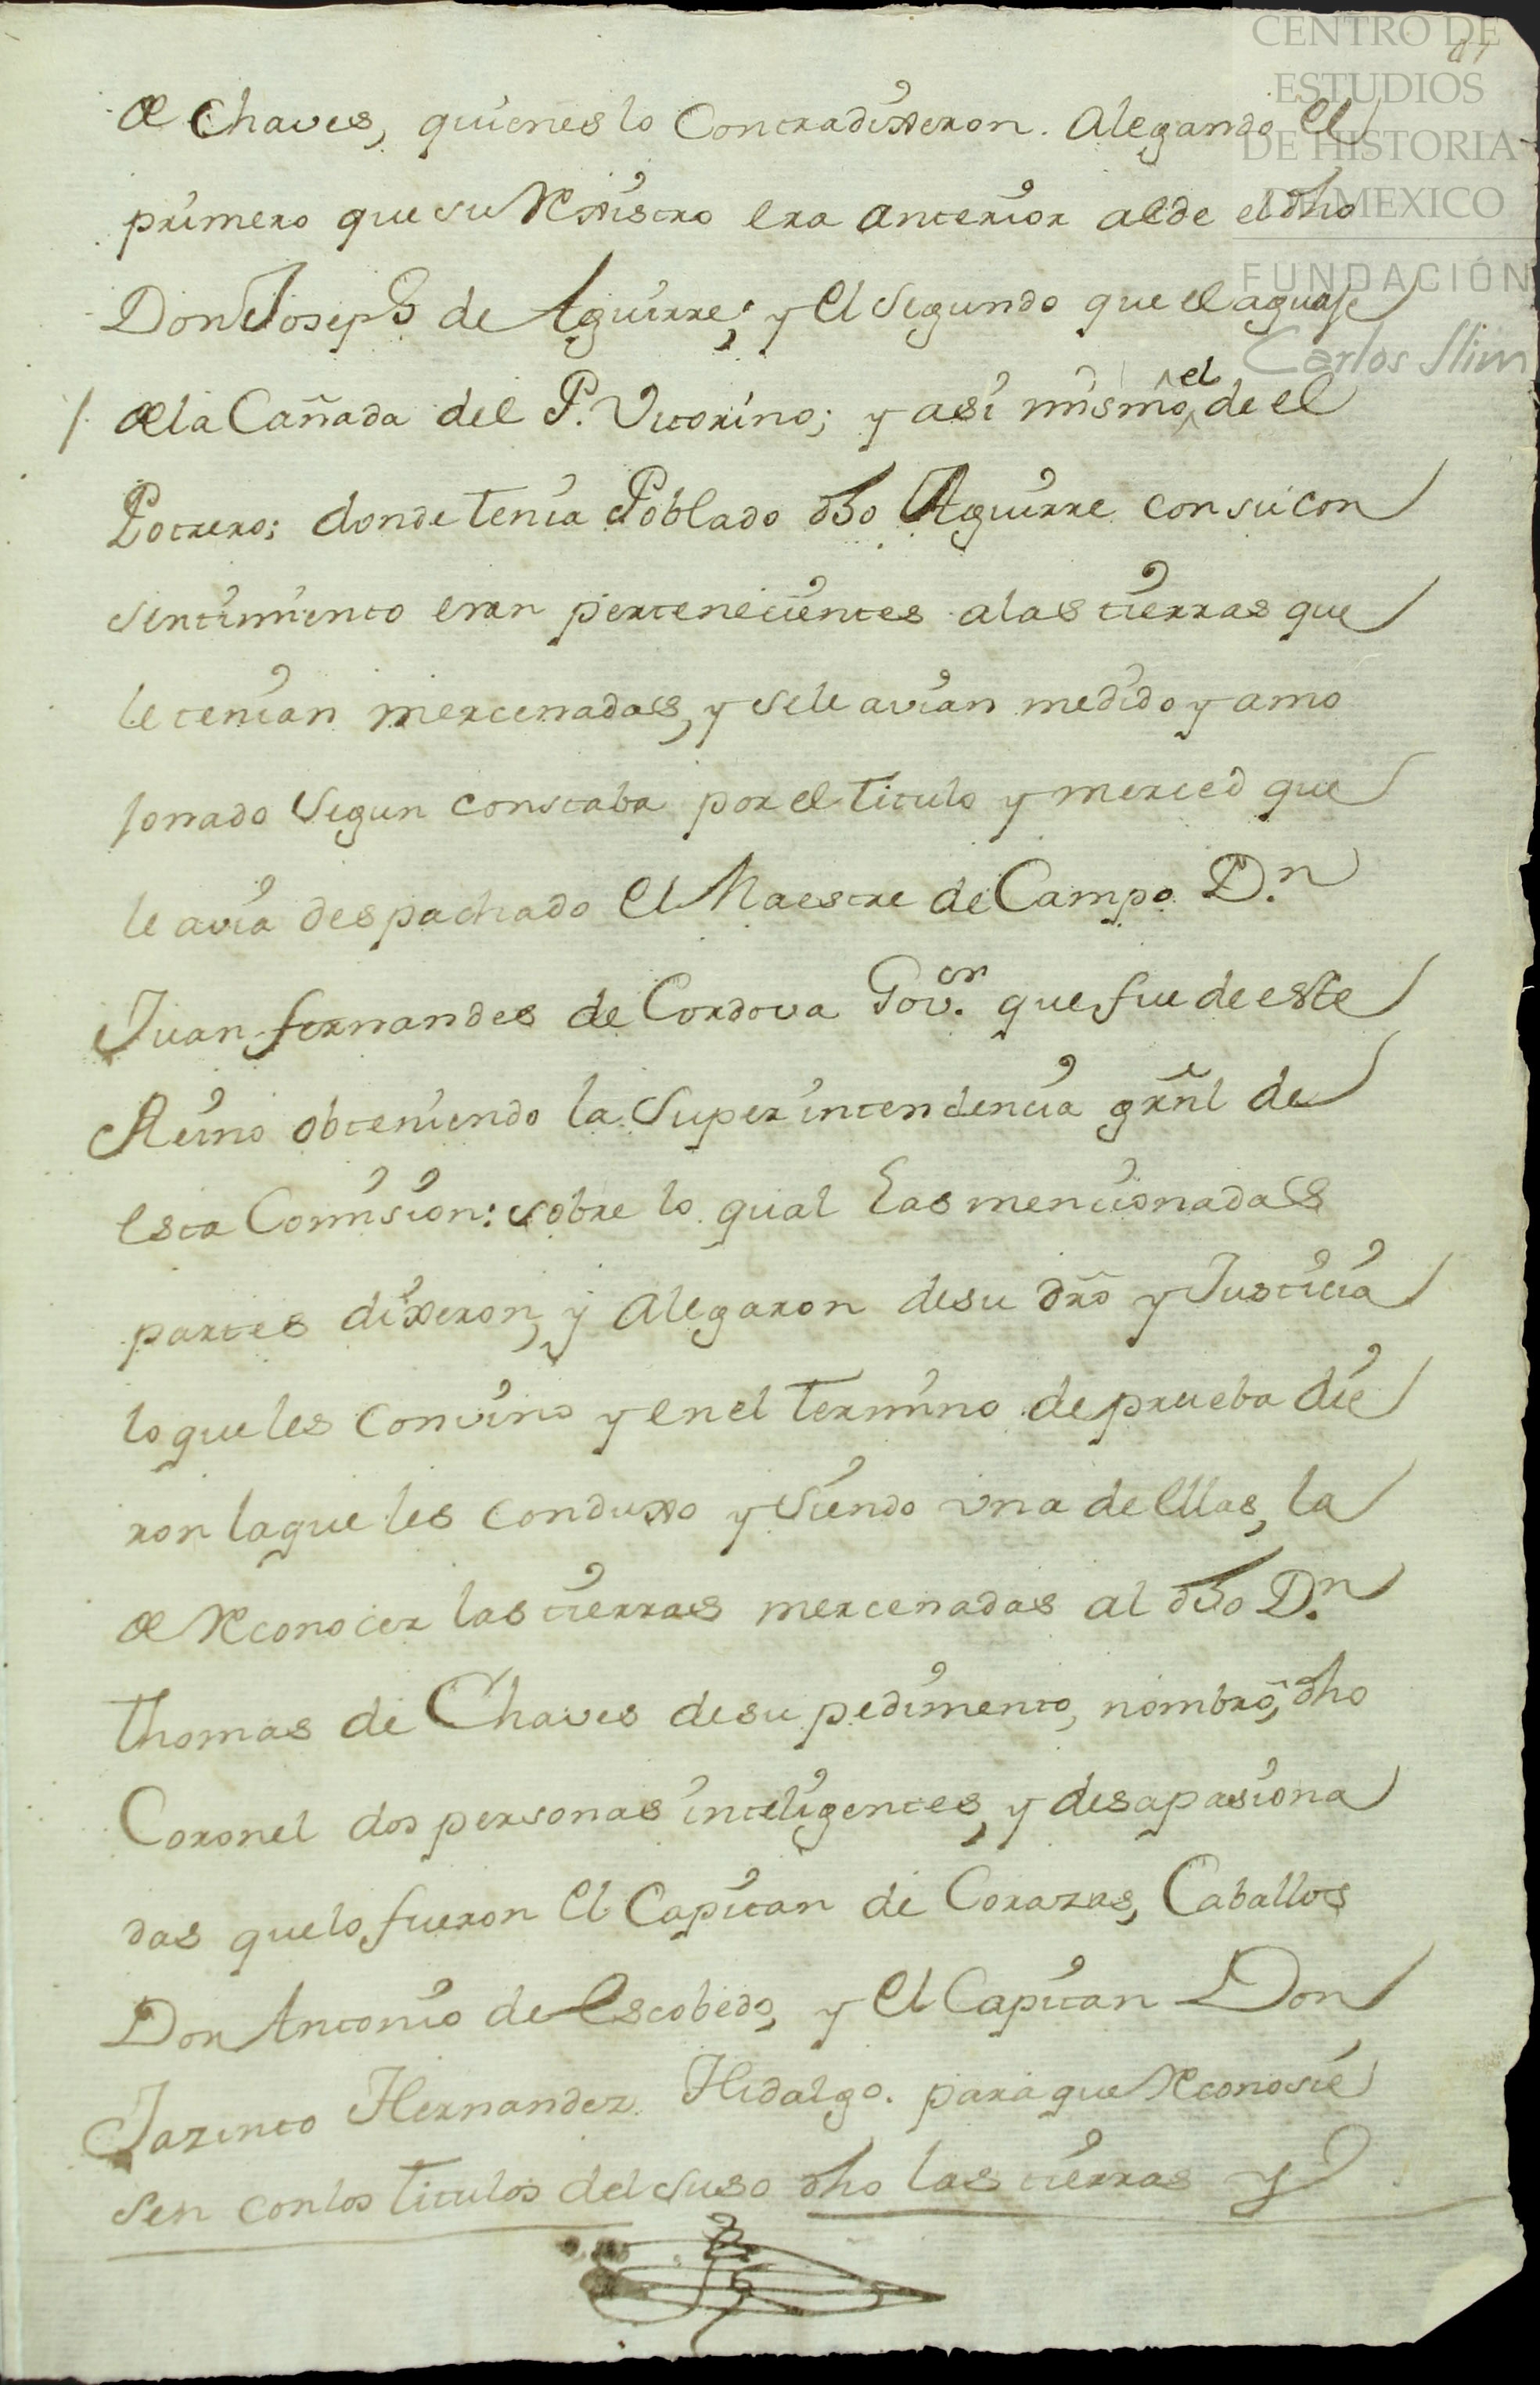 CENTRO DE
ESTUDIOS
DE HISTORIA
DE MEXICO
FUNDACIÓN
Carlos Slim
de Chaves, quienes lo Contradixeron. Alegando el
primero que su Rexistro era anterior alde el dho
Don Joseph de Aguirre; y el Segundo que el aguaje
de la Cañada del P. Vitorino; y asi mismo el de el
Potrero; donde tenia Poblado dho Aguirre con su con
sentimiento eran pertenecientes alas tierras que
le tenian mercenadas, y sele avian medido y amo
jonado Segun constaba por el titulo y merced que
le avia despachado el Maestre de Campo D.n
Juan fernandes de Cordova Gov.or que fue de este
Reino obteniendo la Superintendencia grãl de
esta Comision: sobre lo qual Las mencionadas
partes dixeron, y Alegaron desu dro y Justicia
loque les convino y en el termino de prueba die
ron laque les conduxo y Siendo vna de ellas, la
de Reconocer las tierras mercenadas al dho D.n
thomas de Chaves desu pedimento, nombro, dho
Coronel dos personas inteligentes, y desapasiona
das quelo fueron el Capitan de Corazas, Caballos
Don Antonio de Escobedo, y el Capitan Don
Jazinto Hernandez Hidalgo. para que Reconosie
sen con los titulos del suso dho las tierras y